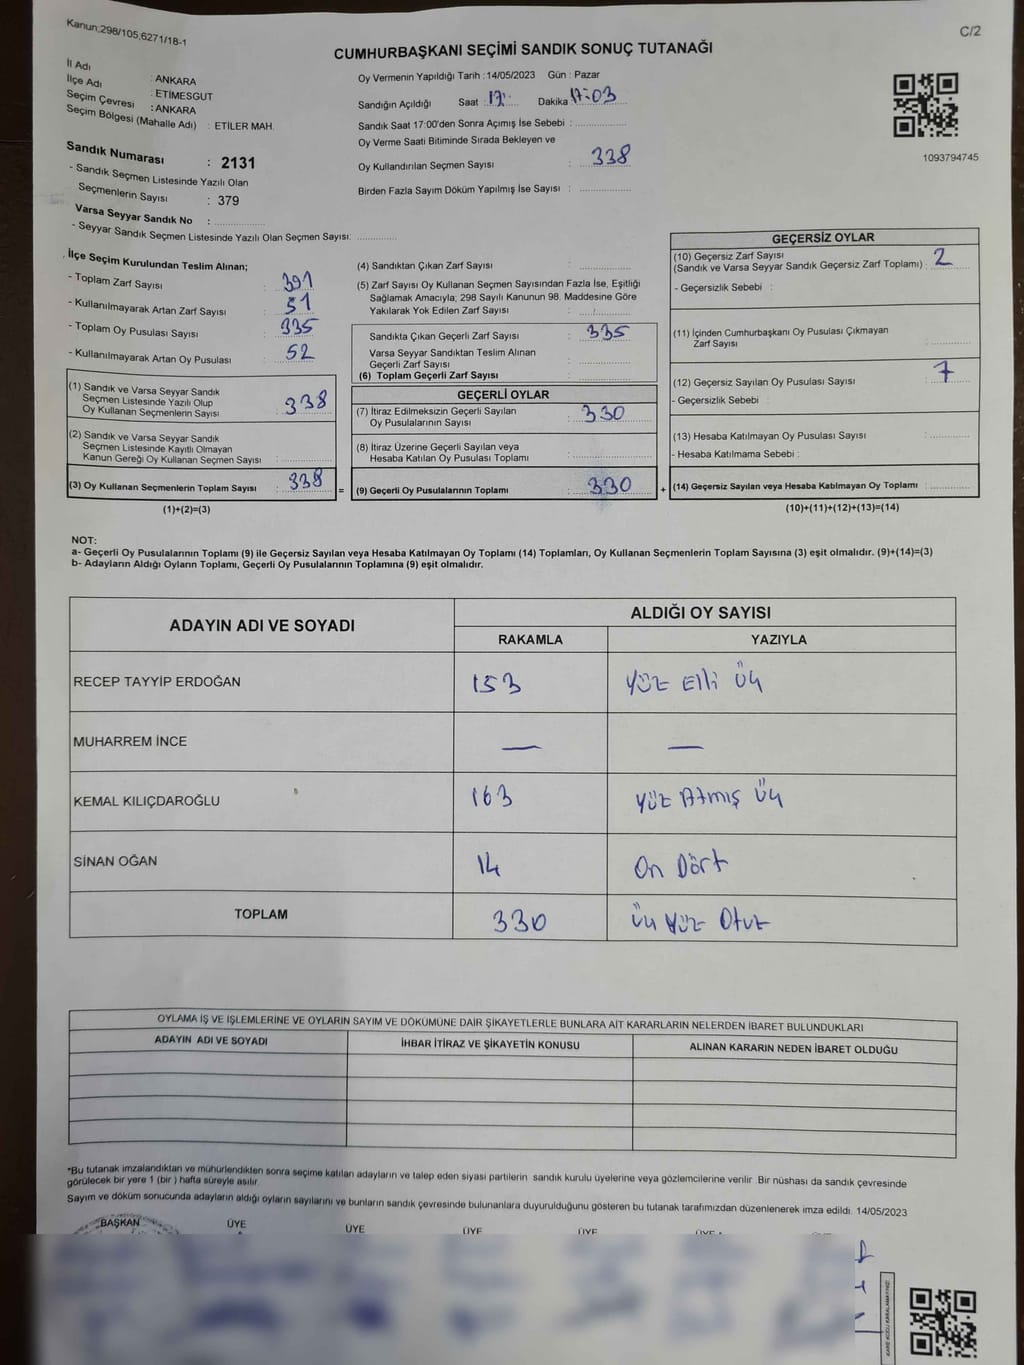 Kanun.298/105,6271/18-1
C/2
CUMHURBAŞKANI SEÇİMİ SANDIK SONUÇ TUTANAĞI
İl Adı : ANKARA
İlçe Adı : ETİMESGUT
Seçim Çevresi : ANKARA
Seçim Bölgesi (Mahalle Adı) : ETİLER MAH.
Sandık Numarası : 2131
- Sandık Seçmen Listesinde Yazılı Olan
Seçmenlerin Sayısı : 379
Varsa Seyyar Sandık No :
- Seyyar Sandık Seçmen Listesinde Yazılı Olan Seçmen Sayısı:
Oy Vermenin Yapıldığı Tarih :14/05/2023 Gün : Pazar
Sandığın Açıldığı Saat : 17: Dakika 17:03
Sandık Saat 17:00'den Sonra Açımış İse Sebebi :
Oy Verme Saati Bitiminde Sırada Bekleyen ve
Oy Kullandırılan Seçmen Sayısı : 338
Birden Fazla Sayım Döküm Yapılmış İse Sayısı :
1093794745
İlçe Seçim Kurulundan Teslim Alınan;
- Toplam Zarf Sayısı : 391
- Kullanılmayarak Artan Zarf Sayısı : 51
- Toplam Oy Pusulası Sayısı : 335
- Kullanılmayarak Artan Oy Pusulası : 52
(1) Sandık ve Varsa Seyyar Sandık
Seçmen Listesinde Yazılı Olup
Oy Kullanan Seçmenlerin Sayısı : 338
(2) Sandık ve Varsa Seyyar Sandık
Seçmen Listesinde Kayıtlı Olmayan
Kanun Gereği Oy Kullanan Seçmen Sayısı :
(3) Oy Kullanan Seçmenlerin Toplam Sayısı : 338
(1)+(2)=(3)
(4) Sandıktan Çıkan Zarf Sayısı :
(5) Zarf Sayısı Oy Kullanan Seçmen Sayısından Fazla İse, Eşitliği
Sağlamak Amacıyla; 298 Sayılı Kanunun 98. Maddesine Göre
Yakılarak Yok Edilen Zarf Sayısı :
Sandıkta Çıkan Geçerli Zarf Sayısı : 335
Varsa Seyyar Sandıktan Teslim Alınan
Geçerli Zarf Sayısı :
(6) Toplam Geçerli Zarf Sayısı :
GEÇERLİ OYLAR
(7) İtiraz Edilmeksizin Geçerli Sayılan
Oy Pusulalarının Sayısı : 330
(8) İtiraz Üzerine Geçerli Sayılan veya
Hesaba Katılan Oy Pusulası Toplamı :
= (9) Geçerli Oy Pusulalarının Toplamı : 330
GEÇERSİZ OYLAR
(10) Geçersiz Zarf Sayısı
(Sandık ve Varsa Seyyar Sandık Geçersiz Zarf Toplamı) : 2
- Geçersizlik Sebebi :
(11) İçinden Cumhurbaşkanı Oy Pusulası Çıkmayan
Zarf Sayısı :
(12) Geçersiz Sayılan Oy Pusulası Sayısı : 7
- Geçersizlik Sebebi :
(13) Hesaba Katılmayan Oy Pusulası Sayısı :
- Hesaba Katılmama Sebebi :
+ (14) Geçersiz Sayılan veya Hesaba Katılmayan Oy Toplamı :
(10)+(11)+(12)+(13)=(14)
NOT:
a- Geçerli Oy Pusulalarının Toplamı (9) ile Geçersiz Sayılan veya Hesaba Katılmayan Oy Toplamı (14) Toplamları, Oy Kullanan Seçmenlerin Toplam Sayısına (3) eşit olmalıdır. (9)+(14)=(3)
b- Adayların Aldığı Oyların Toplamı, Geçerli Oy Pusulalarının Toplamına (9) eşit olmalıdır.
ADAYIN ADI VE SOYADI
ALDIĞI OY SAYISI
RAKAMLA YAZIYLA
RECEP TAYYİP ERDOĞAN 153 Yüz Elli Üç
MUHARREM İNCE — —
KEMAL KILIÇDAROĞLU 163 Yüz Atmış Üç
SİNAN OĞAN 14 On Dört
TOPLAM 330 Üç Yüz Otuz
OYLAMA İŞ VE İŞLEMLERİNE VE OYLARIN SAYIM VE DÖKÜMÜNE DAİR ŞİKAYETLERLE BUNLARA AİT KARARLARIN NELERDEN İBARET BULUNDUKLARI
ADAYIN ADI VE SOYADI İHBAR İTİRAZ VE ŞİKAYETİN KONUSU ALINAN KARARIN NEDEN İBARET OLDUĞU
*Bu tutanak imzalandıktan ve mühürlendikten sonra seçime katılan adayların ve talep eden siyasi partilerin sandık kurulu üyelerine veya gözlemcilerine verilir. Bir nüshası da sandık çevresinde
görülecek bir yere 1 (bir ) hafta süreyle asılır.
Sayım ve döküm sonucunda adayların aldığı oyların sayılarını ve bunların sandık çevresinde bulunanlara duyurulduğunu gösteren bu tutanak tarafımızdan düzenlenerek imza edildi. 14/05/2023
BAŞKAN ÜYE ÜYE ÜYE ÜYE ÜYE